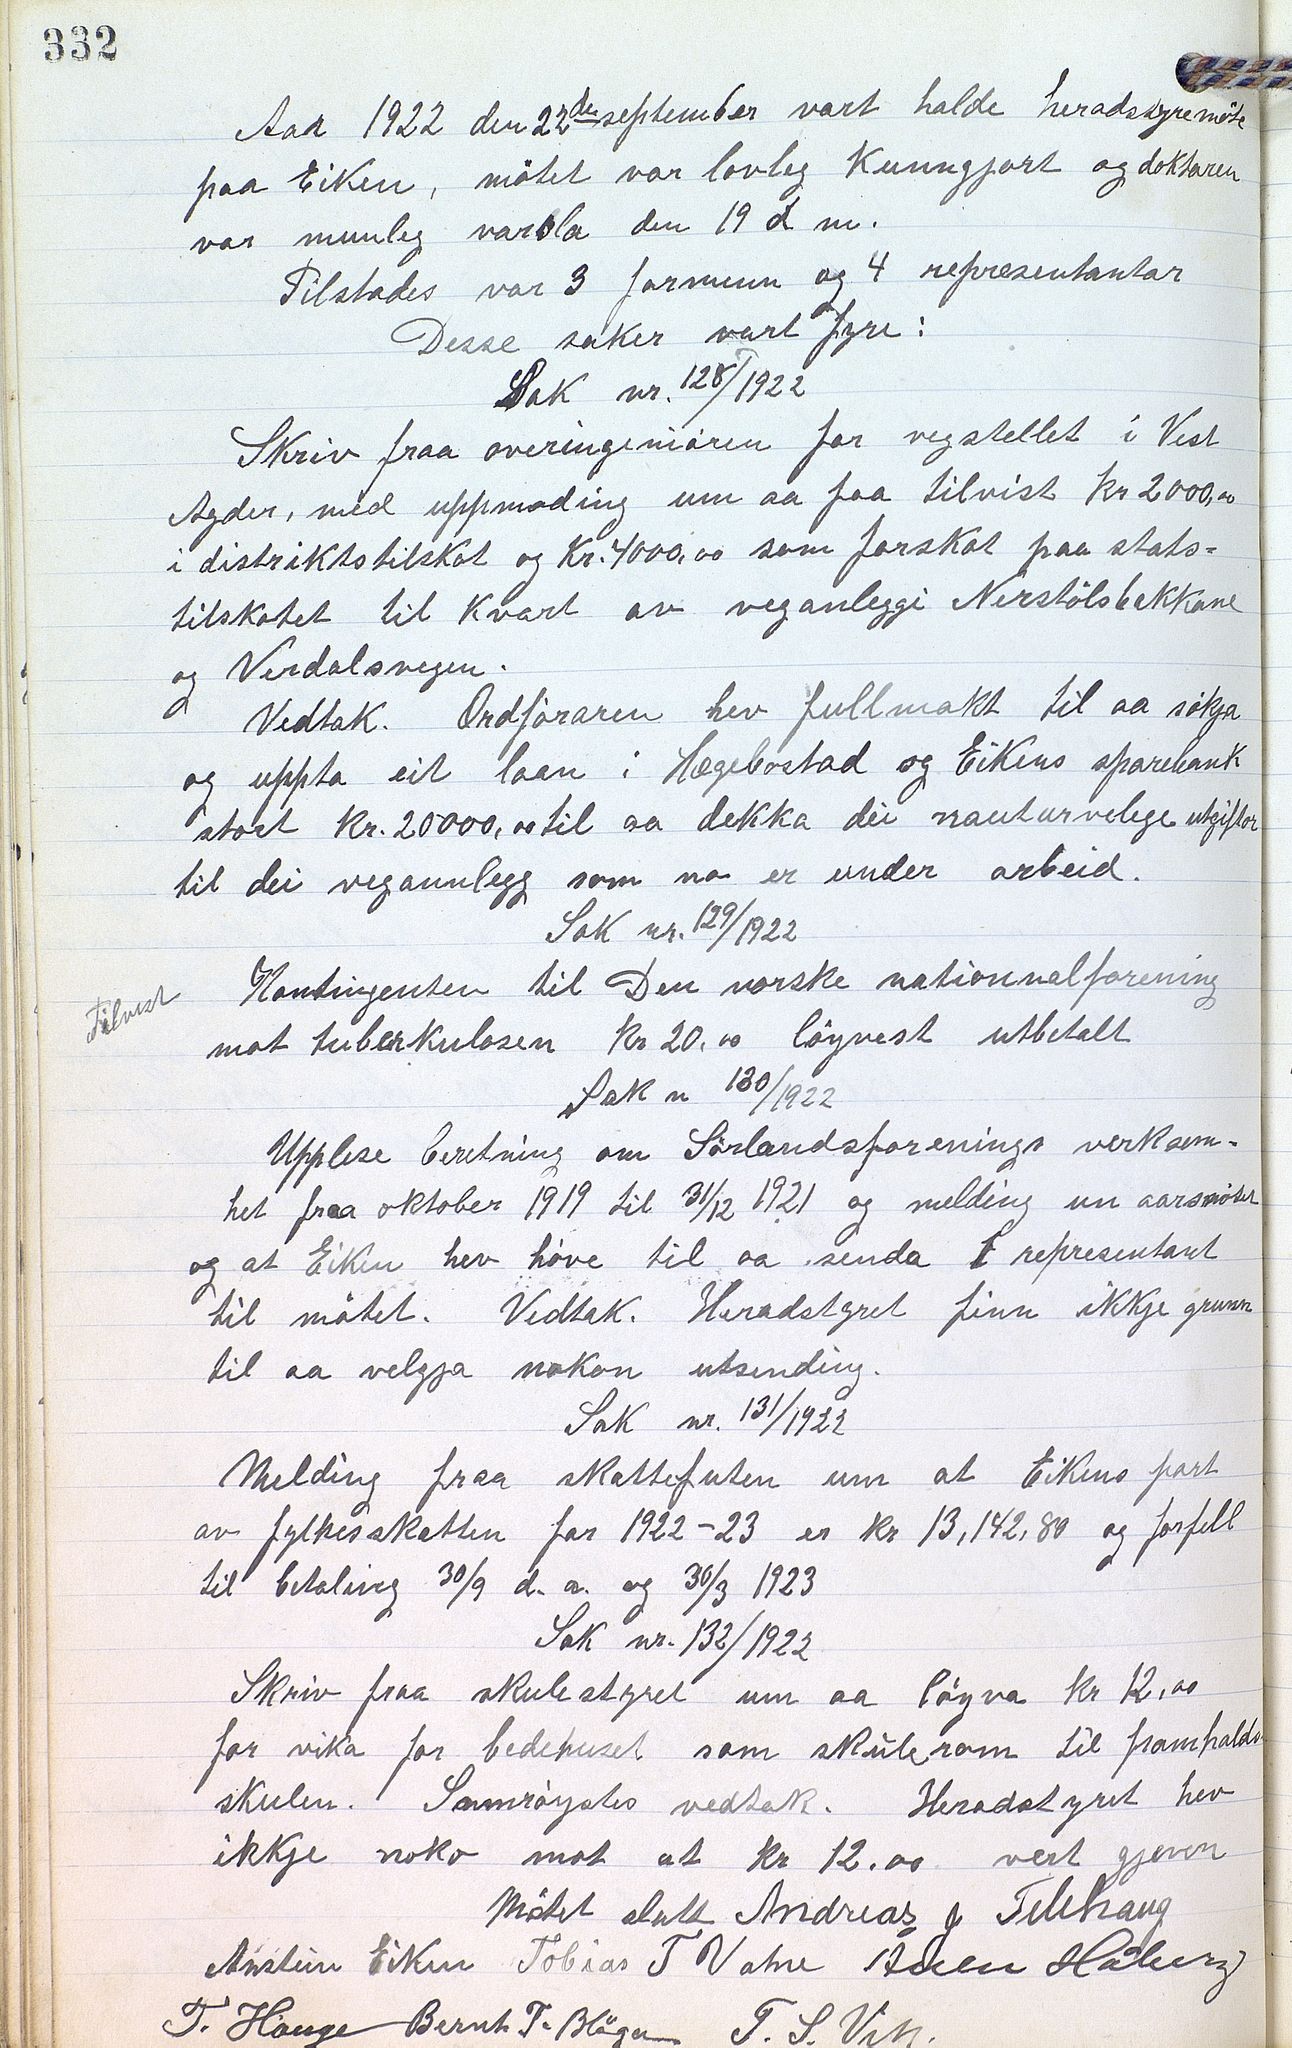 332
Aar 1922 den 22de september vart halde heradstyremöte
paa Eiken, mötet var lovleg kunngjort og doktaren
var munleg varsla den 19 d m.
Tilstades var 3 formenn og 4 representantar
Desse saker vart fyre:
Sak nr. 128/1922
Skriv fraa overingeniören for vegstellet i Vest
Agder, med uppmoding um aa faa tilvist kr 2000,00
i distriktstilskot og kr. 4000,00 som forskot paa stats-
tilskotet til kvart av veganleggi Nerstölsbakkane
og Verdalsvegen.
Vedtak. Ordföraren hev fullmakt til aa sökja
og uppta eit laan i Hægebostad og Eikens sparebank
stort kr. 20000,00 til aa dekka dei nauturvelege utgiftor
til dei vegannlegg som no er under arbeid.
Sak nr. 129/1922
Tilvist
Kontingenten til Den norske nationnalforening
mot tuberkulosen kr 20,00 löyvest utbetalt
Sak n 130/1922
Upplese beretning om Sörlandsforenings verksem-
het fraa oktober 1919 til 31/12 1921 og melding um aarsmötet
og at Eiken hev höve til aa senda 1 representant
til mötet. Vedtak. Heradstyret finn ikkje grunn
til aa velgja nokon utsending.
Sak nr. 131/1922
Melding fraa skattefuten um at Eikens part
av fylkesskatten for 1922-23 er kr 13,142,80 og forfell
til betaling 30/9 d. a. og 30/3 1923
Sak nr. 132/1922
Skriv fraa skulestyret um aa löyva kr 12,00
for vika for bedehuset som skulerom til framhalds-
skulen. Samröystes vedtak. Heradstyret hev
ikkje noko mot at kr 12.00 vert gjeven
Mötet slutt Andreas J Telhaug
Anstein Eiken Tobias T Vatne Ånen Håberg
T. Hauge Bernt T. T. S. Vik.